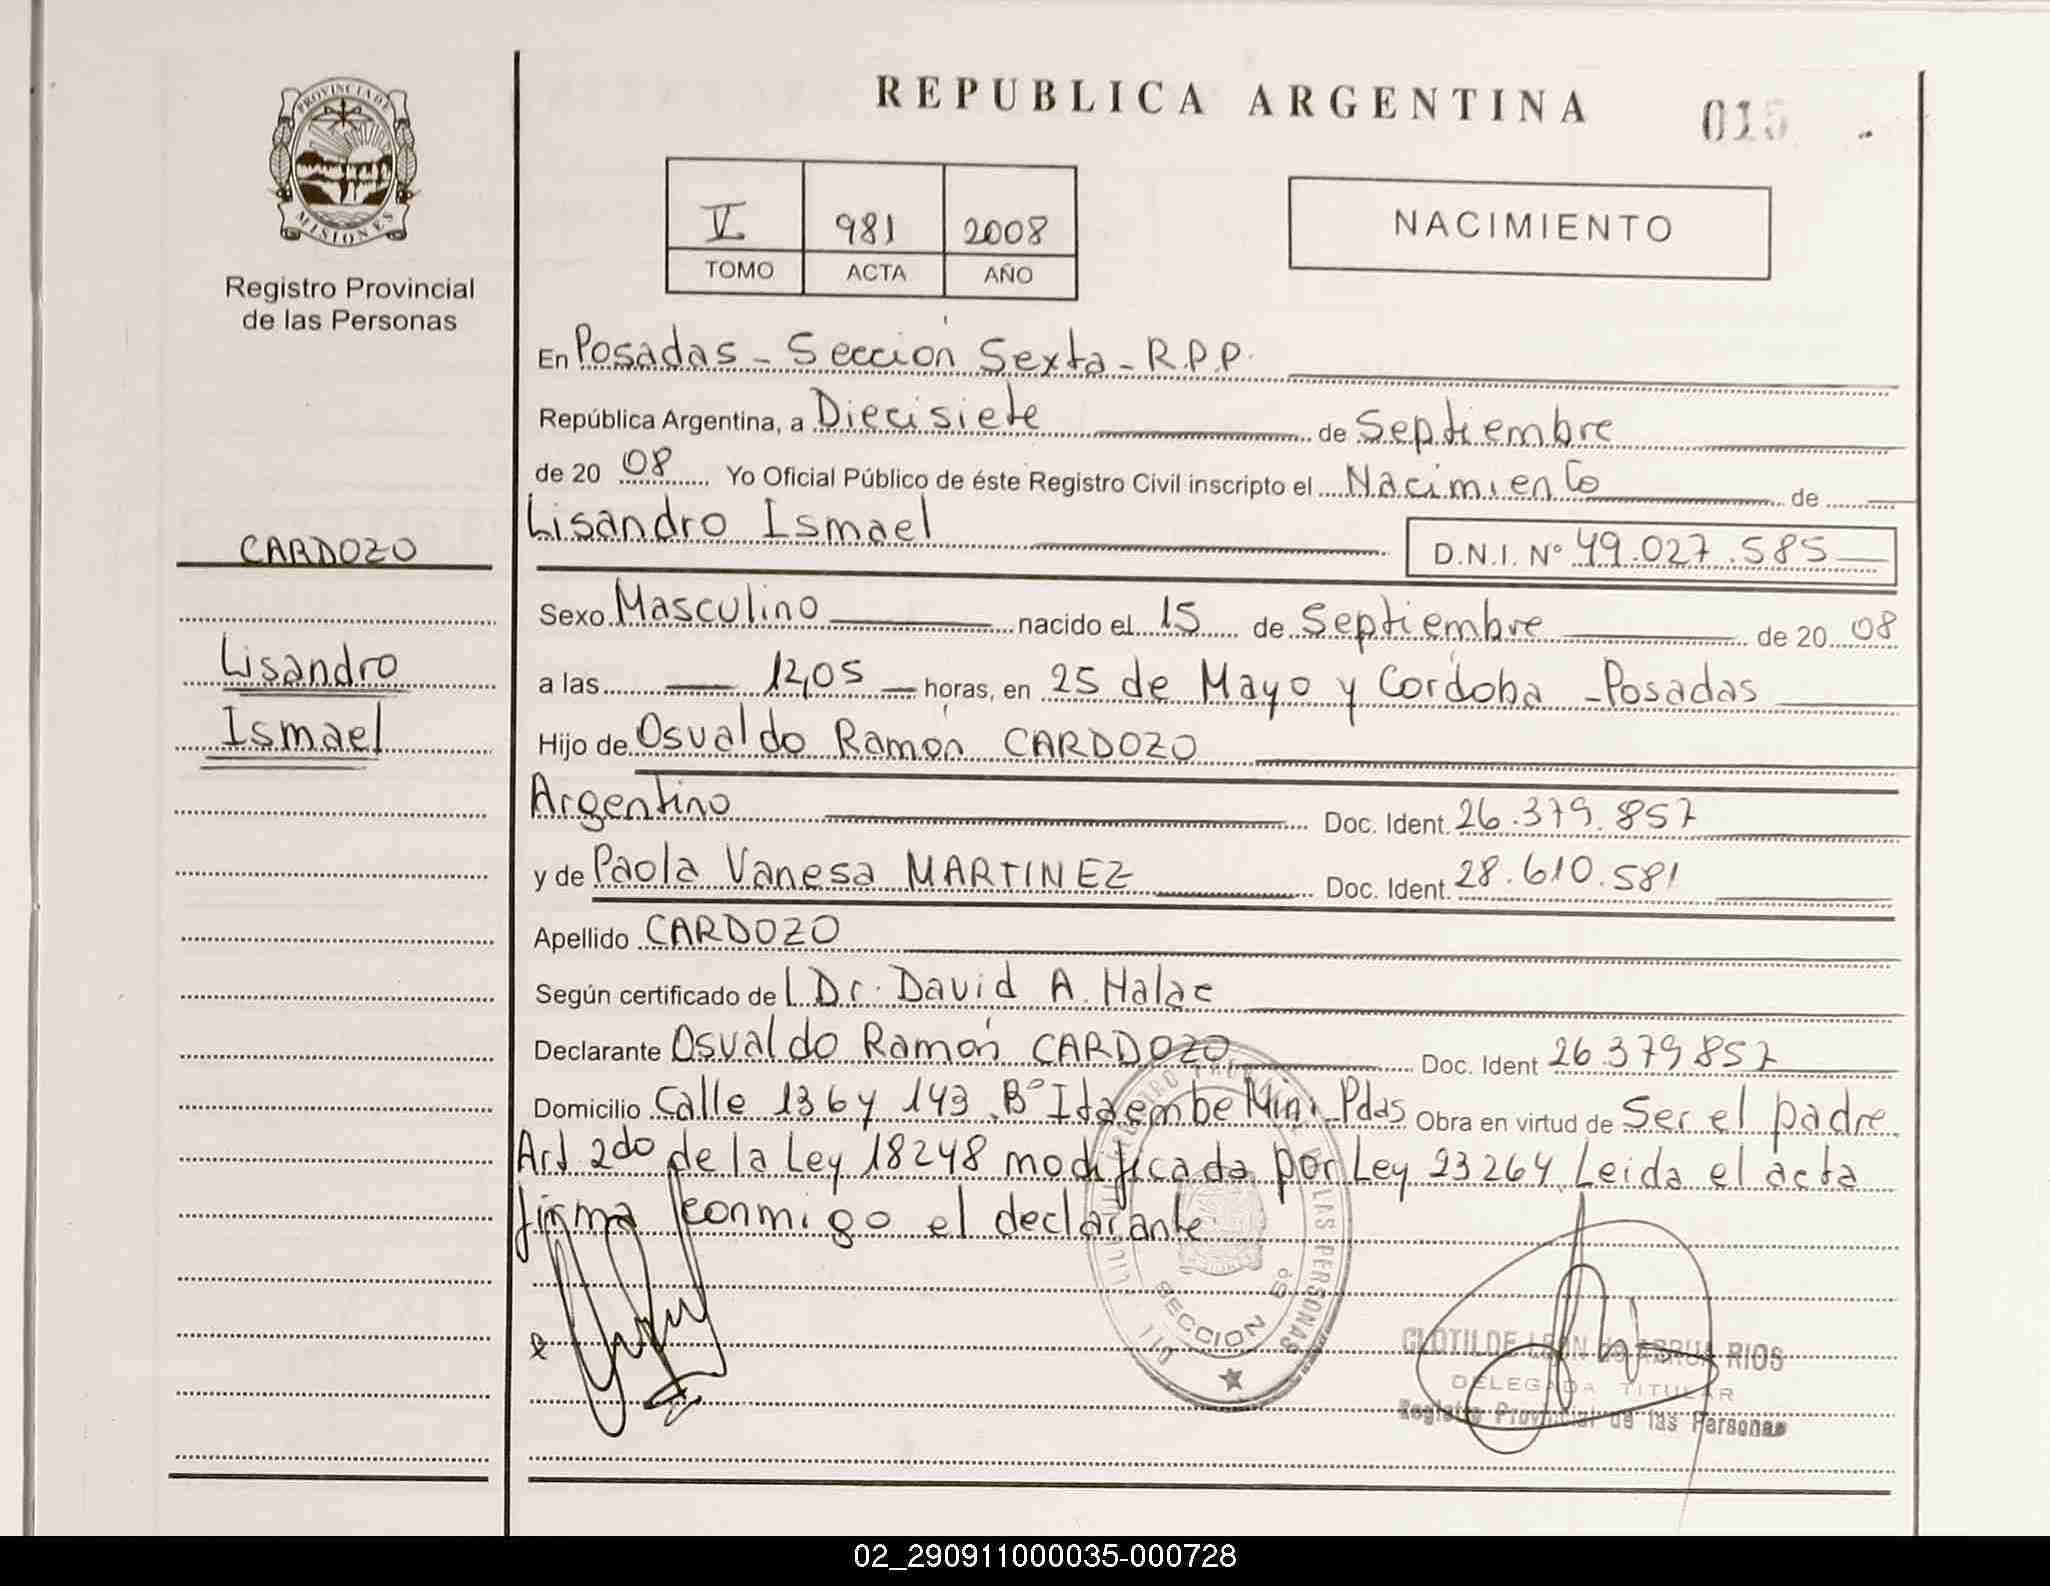 REPUBLICA ARGENTINA
015
PROVINCIA DE
MISIONES
Registro Provincial
de las Personas
V 981 2008
TOMO ACTA AÑO
NACIMIENTO
En Posadas - Sección Sexta - R.P.P.
República Argentina, a Diecisiete de Septiembre
de 20 08 Yo Oficial Público de éste Registro Civil inscripto el Nacimiento de
Lisandro Ismael D.N.I. Nº 49.027.585
CARDOZO
Lisandro
Ismael
Sexo Masculino nacido el 15 de Septiembre de 20 08
a las 12,05 horas, en 25 de Mayo y Córdoba - Posadas
Hijo de Osvaldo Ramón CARDOZO
Argentino Doc. Ident. 26.379.857
y de Paola Vanesa MARTINEZ Doc. Ident. 28.610.581
Apellido CARDOZO
Según certificado de l Dr. David A. Halac
Declarante Osvaldo Ramón CARDOZO Doc. Ident 26.379.857
Domicilio Calle 136 y 143 Bº Itaembe Mini Pdas Obra en virtud de Ser el padre
Art 2do de la Ley 18248 modificada por Ley 23264 Leida el acta
firma conmigo el declarante
LAS PERSONAS
SECCION 6º
CLOTILDE LEON de ARRUA RIOS
DELEGADA TITULAR
Registro Provincial de las Personas
02_290911000035-000728